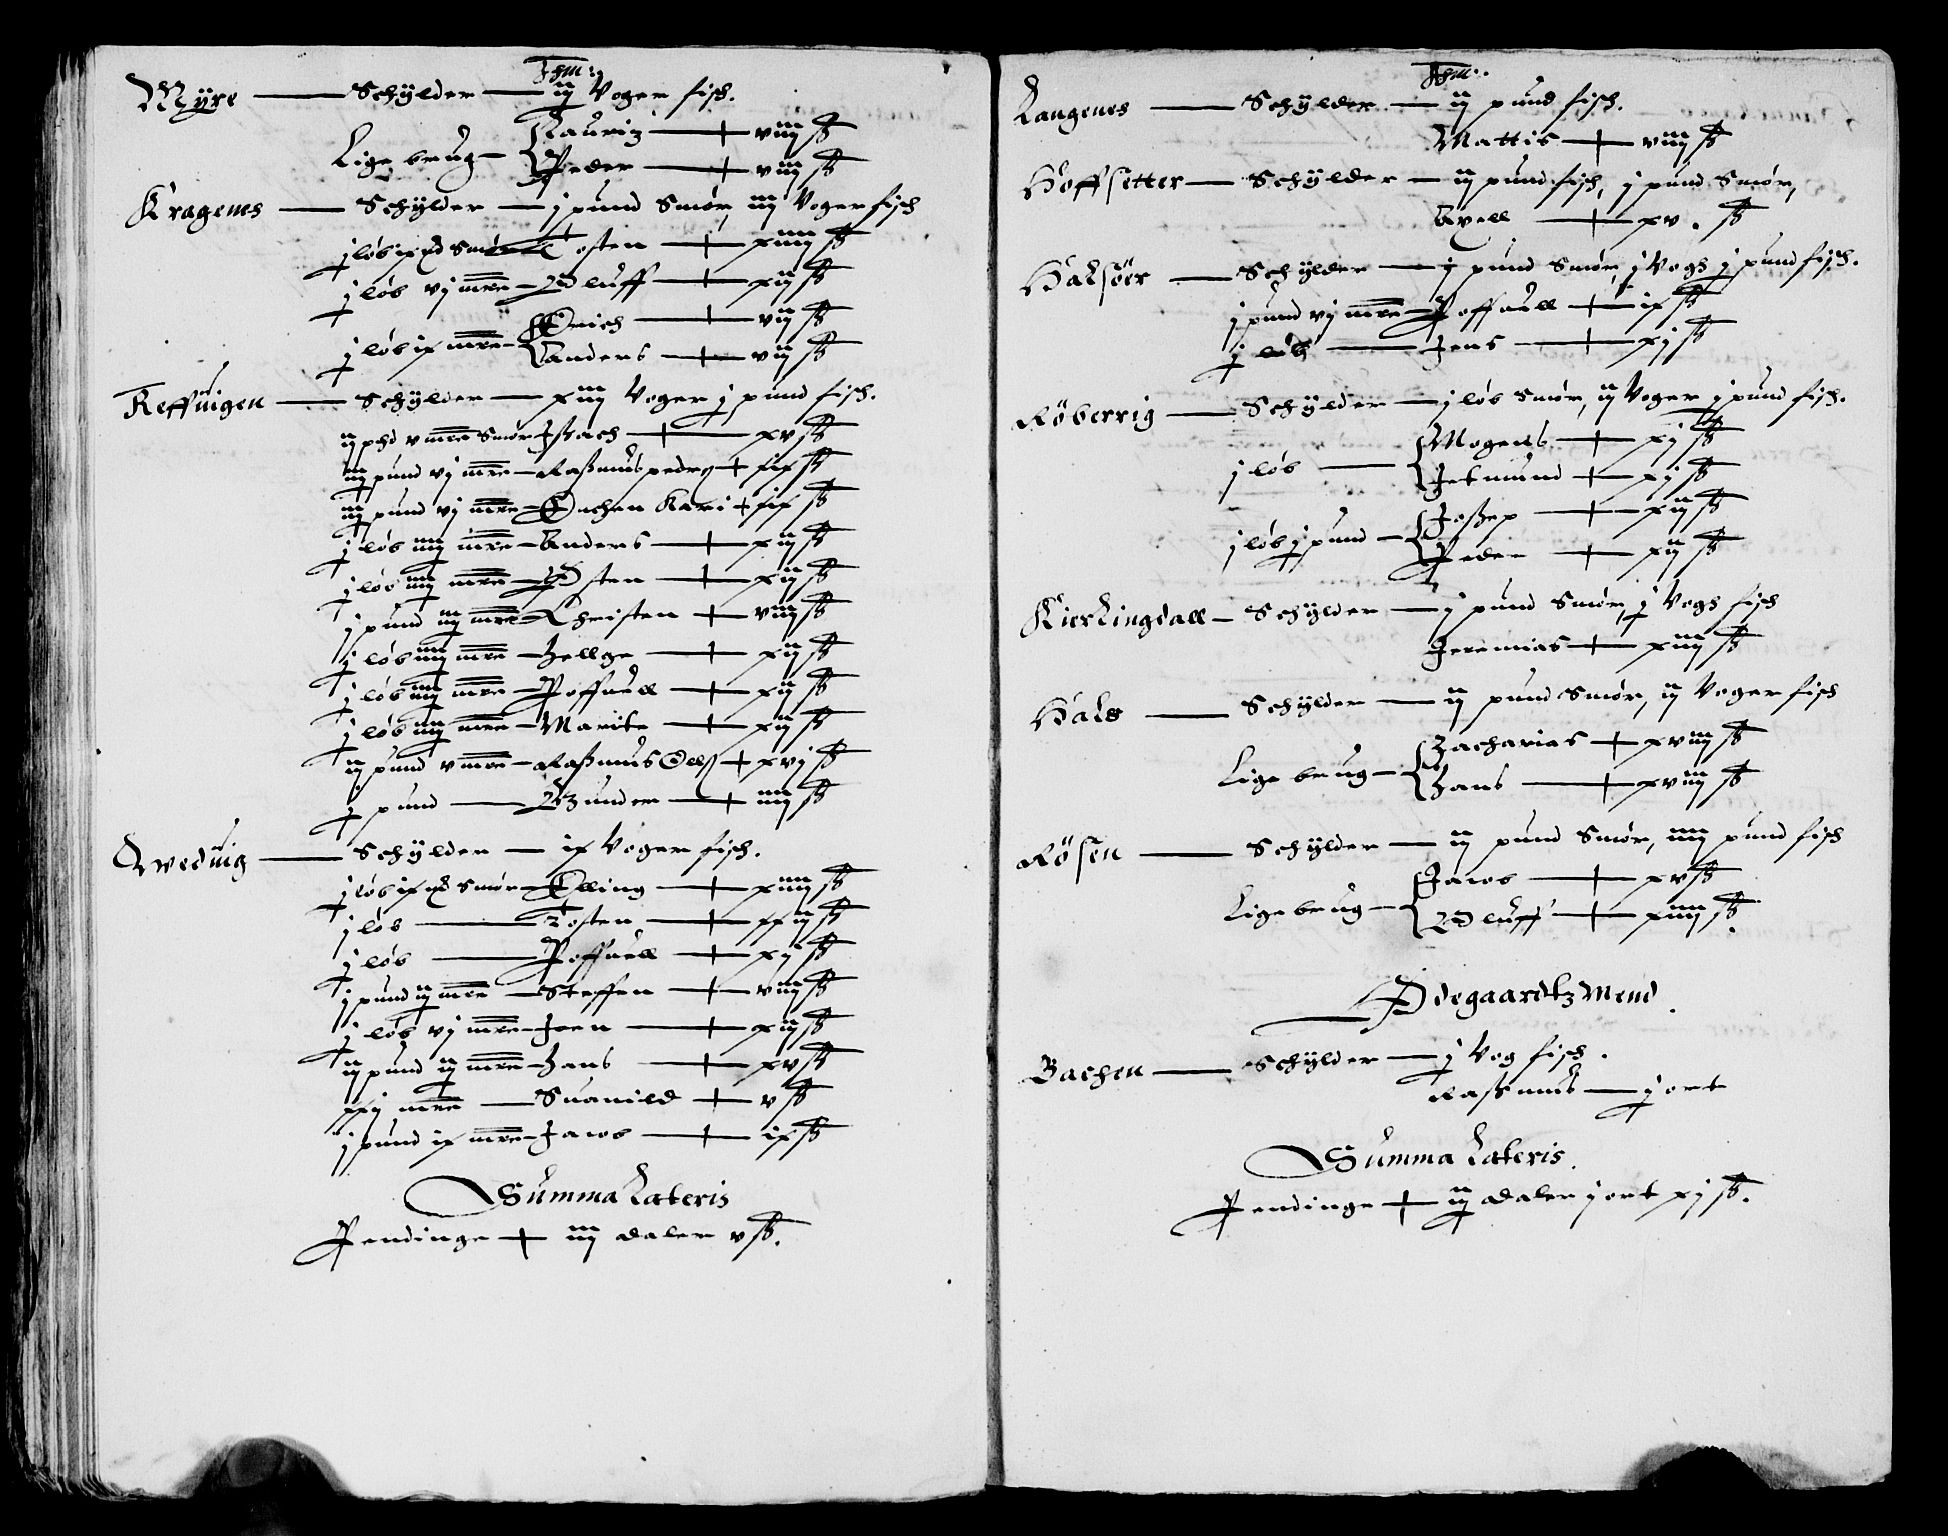 Myre — Schylder — ij Voger fisch.
Lige brug — Lauritz — viij ß
Peder — viij ß
Kragenes — Schylder — j pund Smør, iij Voger fisch
j løb ix Smør Tosten — xiiij ß
j løb vj mrc — Oluff — xij ß
j løb ix mrc — Erich — vij ß
Anders — vij ß
Reffuigen — Schylder — xiij Voger j pund fisch.
ij pd v mrc Smør Issach — xv ß
iij pund vj mrc — Rasmus peders — xix ß
iij pund vj mrc — Enchen Kari — xix ß
j løb iiij mrc — Anders — xij ß
j løb iiij mrc — Østen — xij ß
j pund iij mrc — Christen — viij ß
j løb iiij mrc — Hellge — xij ß
j løb iiij mrc — Poffuell — xij ß
j løb iiij mrc — Marite — xij ß
ij pund v mrc — Rasmus Ells — xvj ß
j pund — Gunder — iiij ß
Arveduig — Schylder — ix Voger fisch.
j løb ix Smør — Elling — xiiij ß
j løb — Tosten — xxij ß
j løb — Poffuell — xj ß
j pund ij mrc — Steffen — viij ß
j løb vj mrc — Joen — xij ß
ij pund ij mrc — Hans — xv ß
xxj mrc — Suanild — v ß
j pund ix mrc — Jacob — ix ß
Summa Lateris
Pendinge — iij daler v ß.
Langenes — Schylder — ij pund fisch.
Mattis — viij ß
Hoffsetter — Schylder — ij pund fisch, j pund Smør,
Axell — xv. ß
Halsøer — Schylder — j pund Smør, j Vogh j pund fisch.
j pund vj mrc — Poffuell — ix ß
j løb — Jens — xj ß
Røberrig — Schylder — j løb Smør, ij Voger j pund fisch.
j løb — Mogens — xj ß
Jetmund — xj ß
j løb j pund — Joszep — xij ß
Peder — xij ß
Kierlingdall — Schylder — j pund Smør, j Vogh fisch
Jeremias — xiij ß
Hals — Schylder — ij pund Smør, ij Voger fisch
Lige brug — Zacharias — xviij ß
Hans — xviij ß
Røsen — Schylder — ij pund Smør, iiij pund fisch
Lige brug — Jacob — xv ß
Oluff — xiiij ß.
Ødegaardtz Mend.
Bachen — Schylder — j Vog fisch.
Rasmus — j ort
Summa Lateris.
Pendinge — ij daler j ort xj ß.